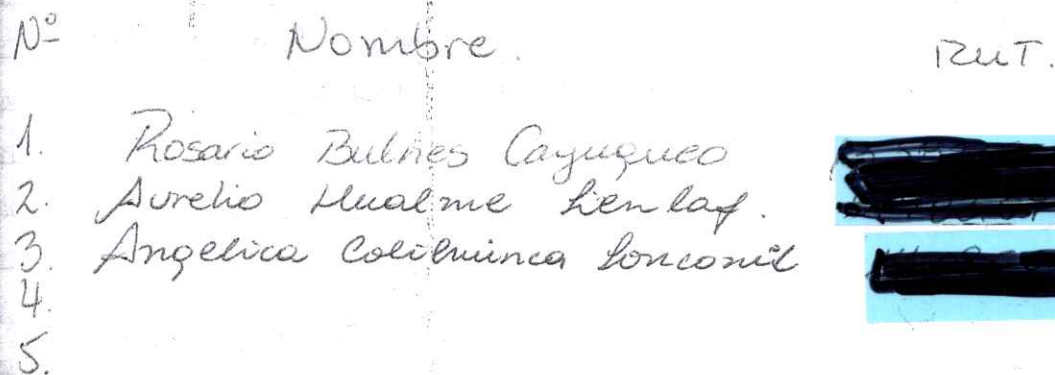 Nº Nombre. RUT.
1. Rosario Bulnes Cayuqueo
2. Aurelio Hualme Lienlaf.
3. Angelica Colihuinca Lonconil
4.
5.